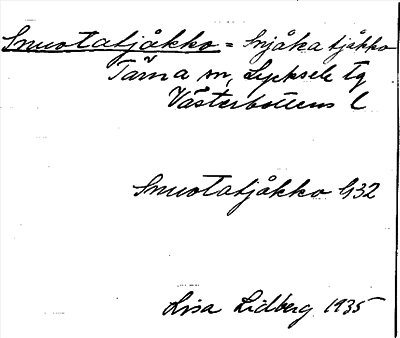 Smuotatjåkko = Snjåkatjåkko
Tärna sn, Lycksele tg
Västerbottens l
Smuotatjåkko G32
Lisa Lidberg 1935